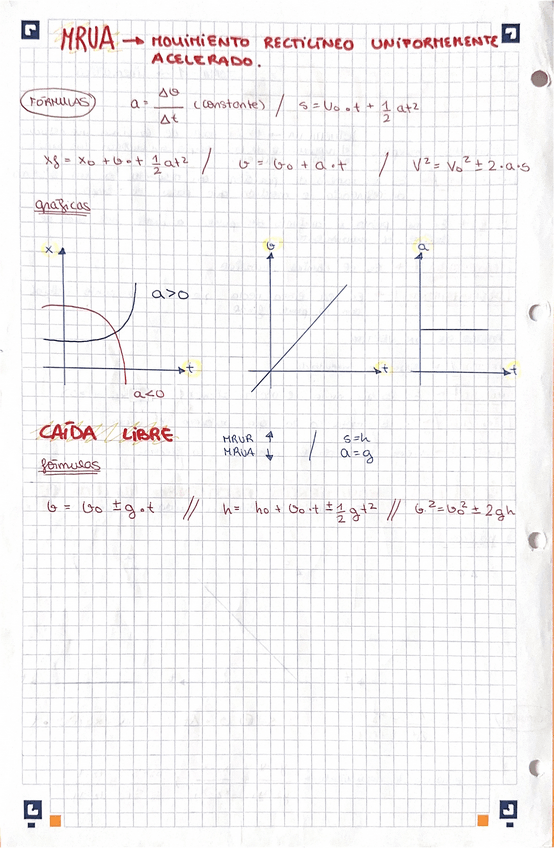 MRUA → MOVIMIENTO RECTILÍNEO UNIFORMEMENTE
ACELERADO.
FÓRMULAS a = Δv/Δt (constante) / s = v₀ · t + 1/2 at²
xf = x₀ + v₀ · t + 1/2 at² / v = v₀ + a · t / v² = v₀² ± 2 · a · s
gráficas
x v a
a>0
t t t
a<0
CAÍDA LIBRE MRUR ↑ / s=h
MRUA ↓ a=g
fórmulas
v = v₀ ± g · t // h = h₀ + v₀ · t ± 1/2 gt² // v² = v₀² ± 2gh